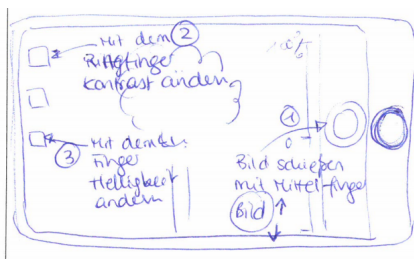 Mit dem ②
Ringfinger
Kontrast ändern
③
Mit dem
Finger
Helligkeit
ändern
①
0
Bild schießen
mit Mittelfinger
Bild